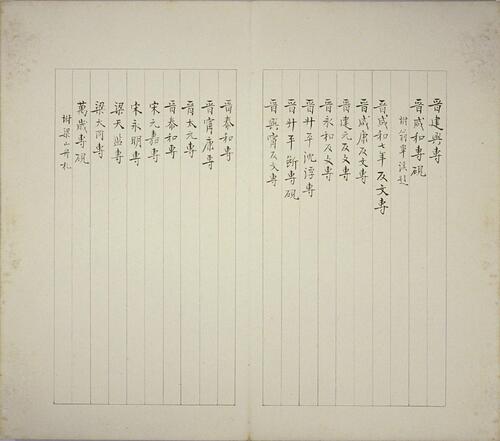 晉建興專
晉咸和專硯
晉咸和七年反文專
晉咸康反文專
晉建元反文專
晉永和反文專
晉升平沈淳專
晉升平斷專硯
晉興甯反文專
晉泰和專
晉甯康專
晉太元專
晉泰和專
宋元嘉專
宋永明專
梁天監專
梁大同專
萬歲專硯
坿梁山舟札